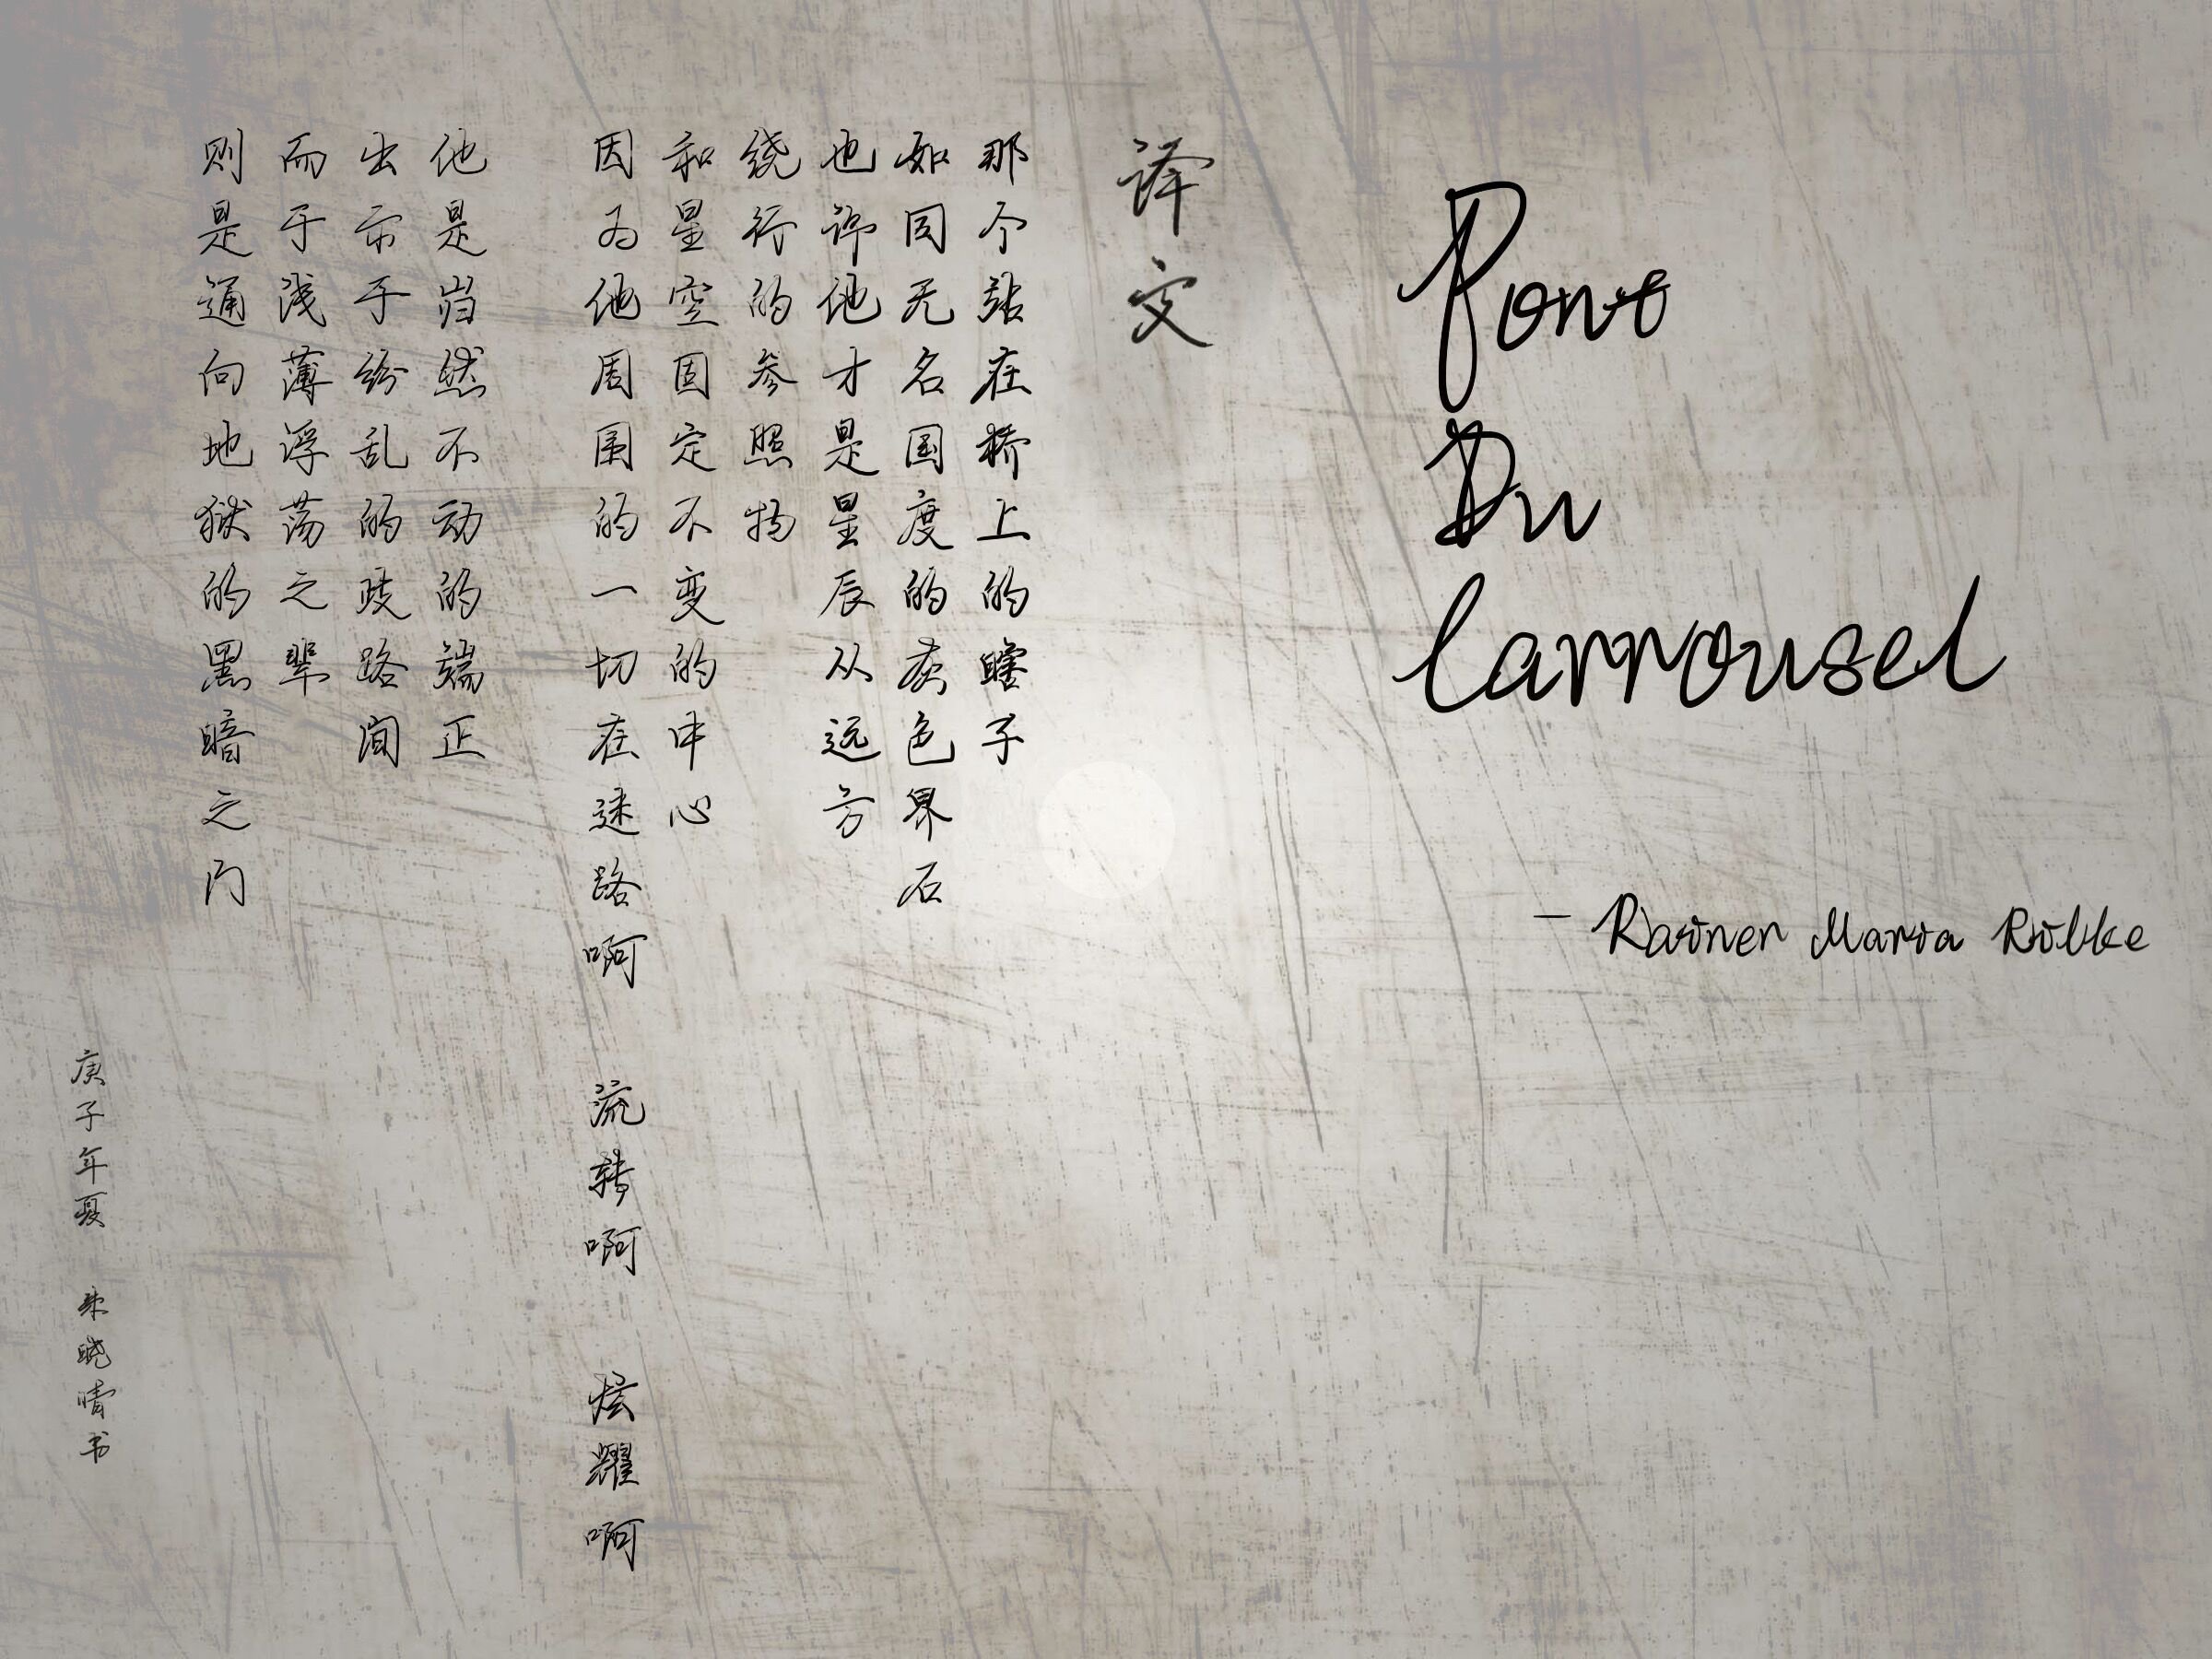 Pont
Du
Carrousel
— Rainer Maria Rilke
译文
那个站在桥上的瞎子
如同无名国度的灰色界石
也许他才是星辰从远方
绕行的参照物
和星空固定不变的中心
因为他周围的一切在迷路啊 流转啊 炫耀啊
他是岿然不动的端正
出示于纷乱的歧路间
而于浅薄浮荡之辈
则是通向地狱的黑暗之门
庚子年夏 朱晓晴书